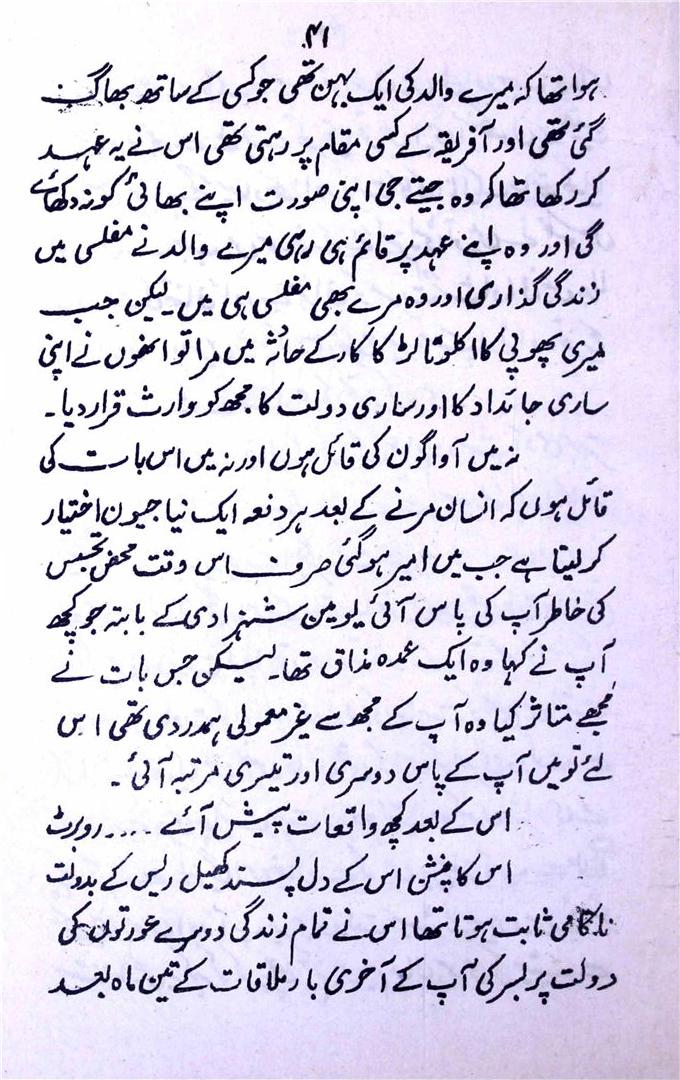 ۴۱
ہوا تھا کہ میرے والد کی ایک بہن تھی جو کسی کے ساتھ بھاگ
گئی تھی اور آفریقہ کے کسی مقام پر رہتی تھی اس نے یہ عہد
کر رکھا تھا کہ وہ جیتے جی اپنی صورت اپنے بھائی کو نہ دکھائے
گی اور وہ اپنے عہد پر قائم ہی رہی میرے والد نے مفلسی میں
زندگی گذاری اور وہ مرے بھی مفلسی ہی میں۔ لیکن جب
میری پھوپی کا اکلوتا لڑکا کار کے حادثہ میں مرا تو انھوں نے اپنی
ساری جائداد کا اور ساری دولت کا مجھ کو وارث قرار دیا۔
نہ میں آواگون کی قائل ہوں اور نہ میں اس بات کی
قائل ہوں کہ انسان مرنے کے بعد ہر دفعہ ایک نیا جیون اختیار
کر لیتا ہے جب میں امیر ہو گئی صرف اس وقت محض تجسس
کی خاطر آپ کی پاس آئی یومین شہزادی کے بابتہ جو کچھ
آپ نے کہا وہ ایک عمدہ مذاق تھا۔ لیکن جس بات نے
مجھے متاثر کیا وہ آپ کے مجھ سے غیر معمولی ہمدردی تھی اس
لئے تو میں آپ کے پاس دوسری اور تیسری مرتبہ آئی۔
اس کے بعد کچھ واقعات پیش آئے .... روبرٹ
اس کا فشن اس کے دل پسند کھیل ریس کے بدولت
ناکامی ثابت ہوتا تھا اس نے تمام زندگی دوسرے عورتوں کی
دولت پر بسر کی آپ کے آخری بار ملاقات کے تین ماہ بعد